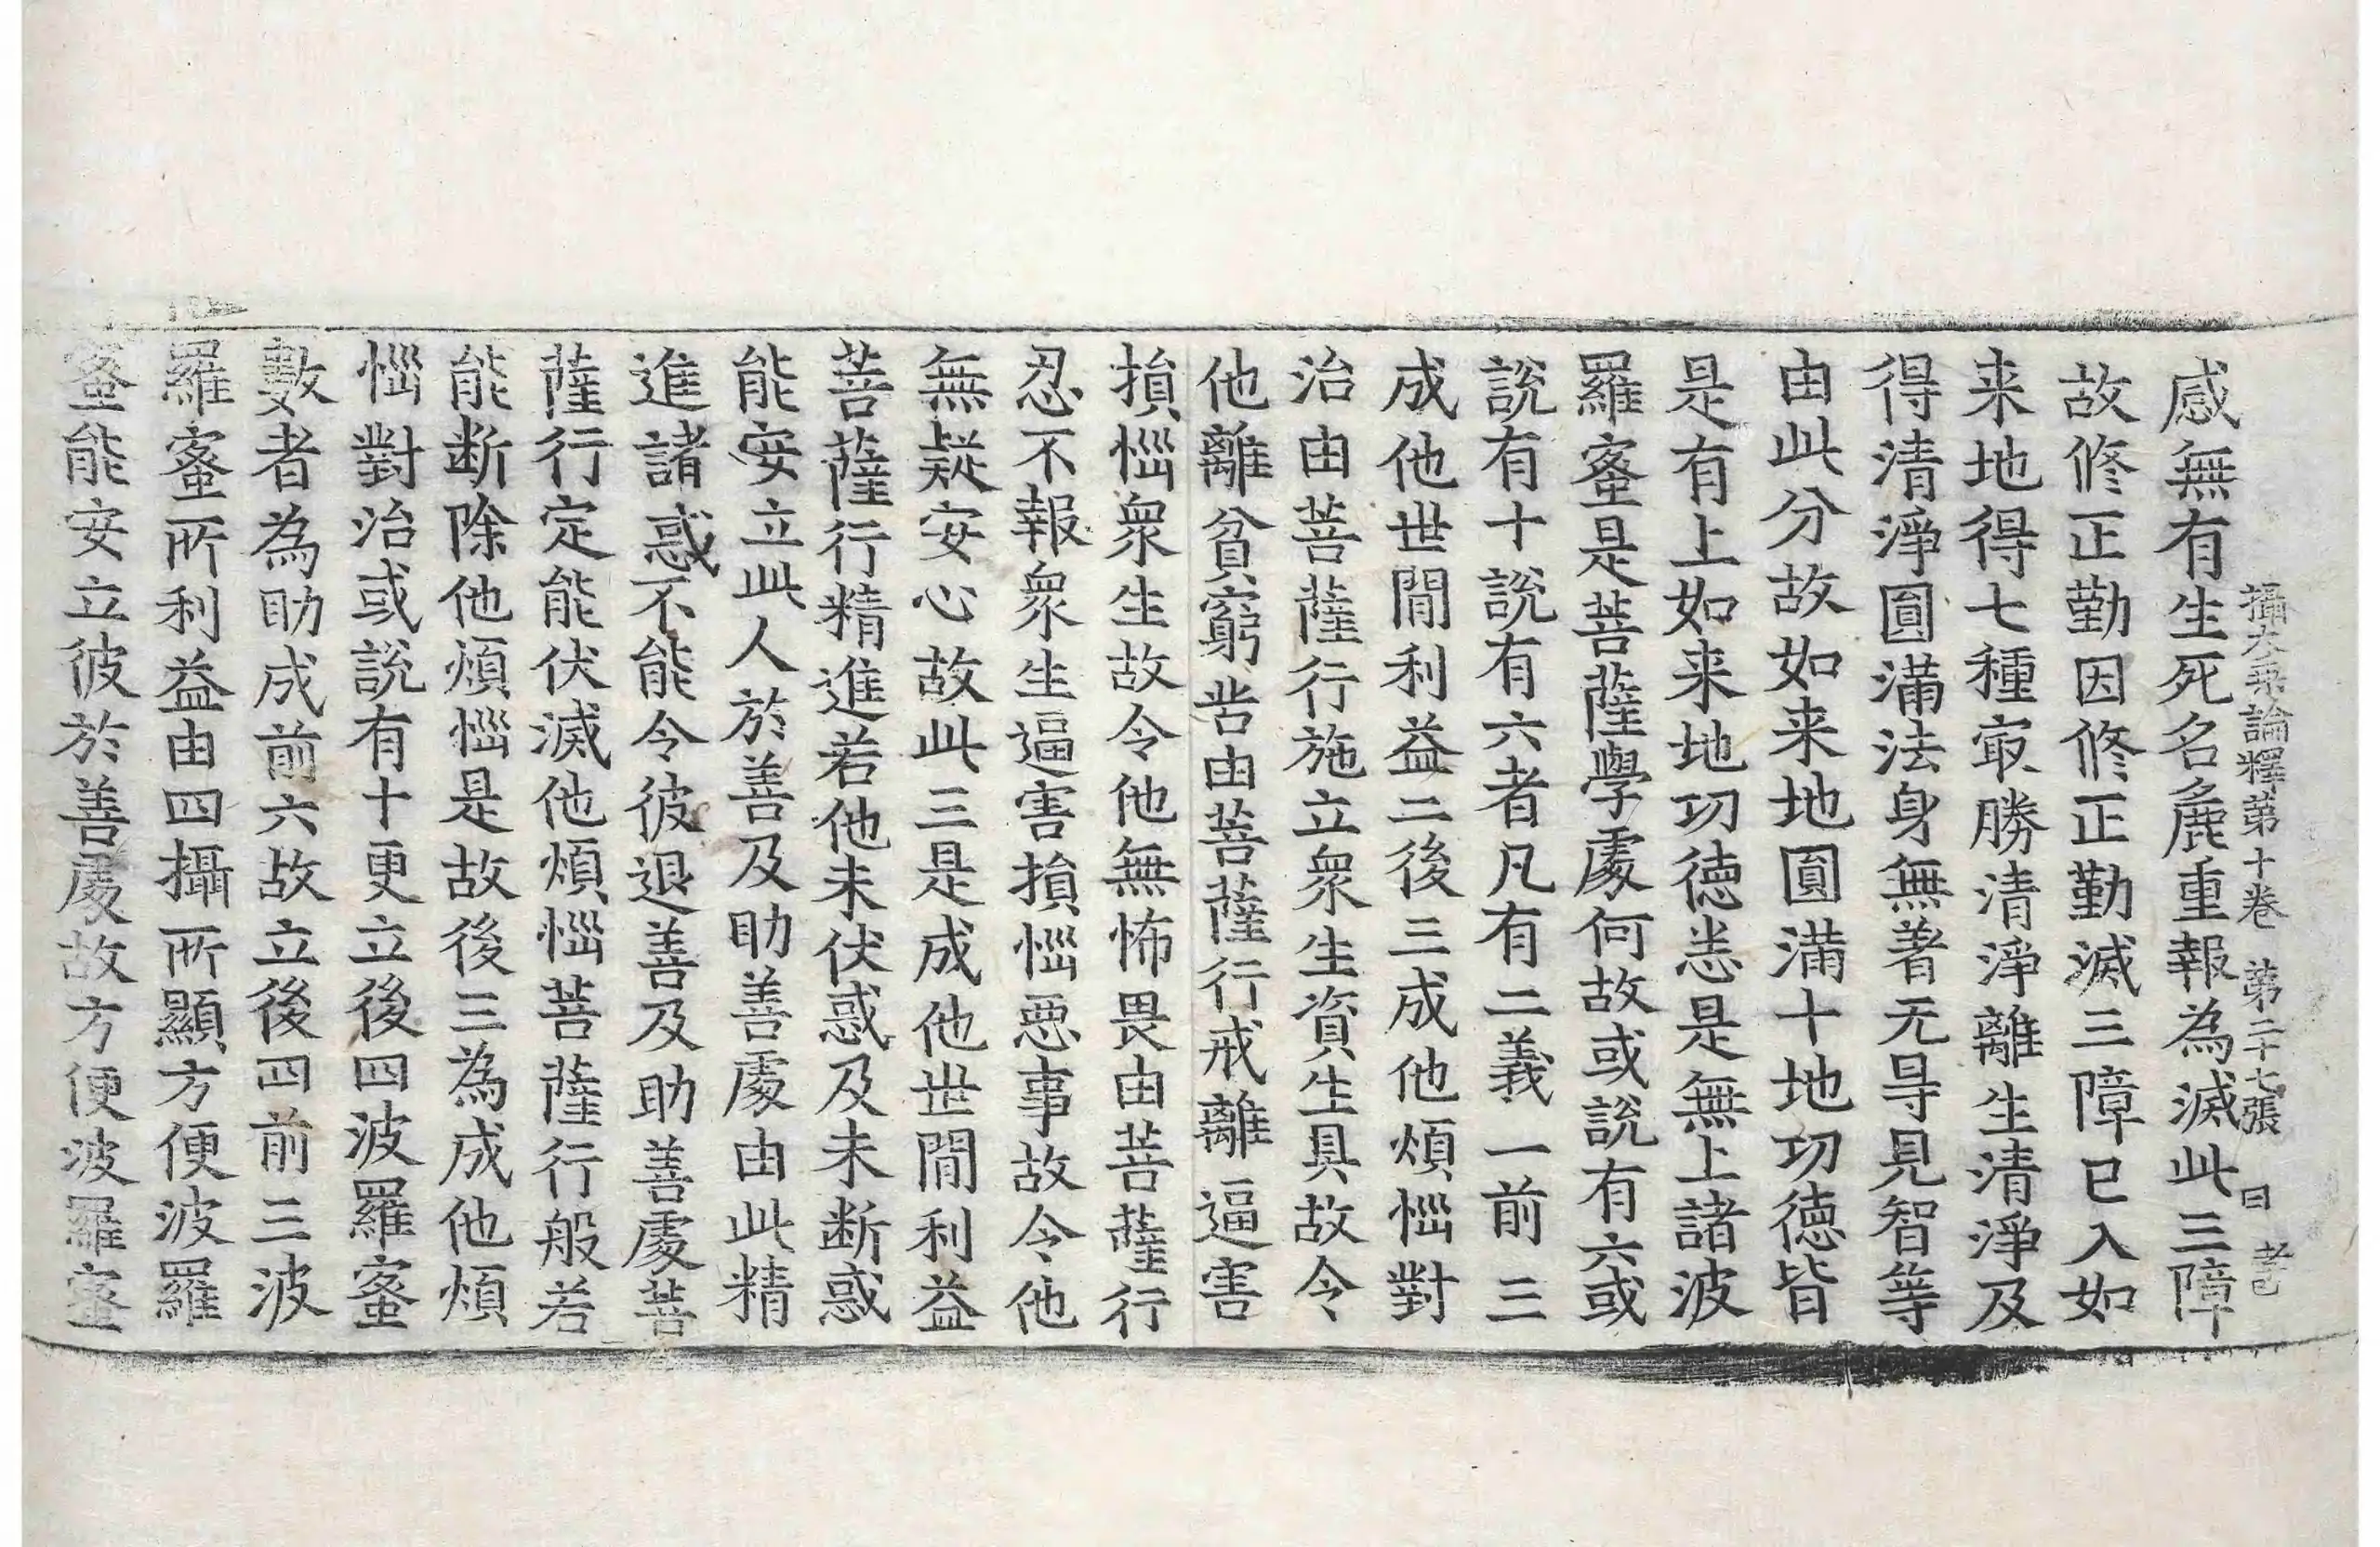 攝大乘論釋第十卷 第二十七張 曰
感無有生死名麁重報為滅此三障
故修正勤因修正勤滅三障已入如
来地得七種㝡勝清淨離生清淨及
得清淨圓滿法身無著无㝵見智等
由此分故如来地圓滿十地功徳皆
是有上如来地功徳恙是無上諸波
羅蜜是菩薩學處何故或説有六或
説有十説有六者凡有二義一前三
成他世間利益二後三成他煩惱對
治由菩薩行施立衆生資生具故令
他離貧窮苦由菩薩行戒離逼害
損惱衆生故令他無怖畏由菩薩行
忍不報衆生逼害損惱惡事故令他
無疑安心故此三是成他世間利益
菩薩行精進若他未伏惑及未断惑
能安立此人於善及助善處由此精
進諸惑不能令彼退善及助善處菩
薩行定能伏滅他煩惱菩薩行般若
能断除他煩惱是故後三為成他煩
惱對治或説有十更立後四波羅蜜
數者為助成前六故立後四前三波
羅蜜所利益由四攝所顯方便波羅
蜜能安立彼於善處故方便波羅蜜